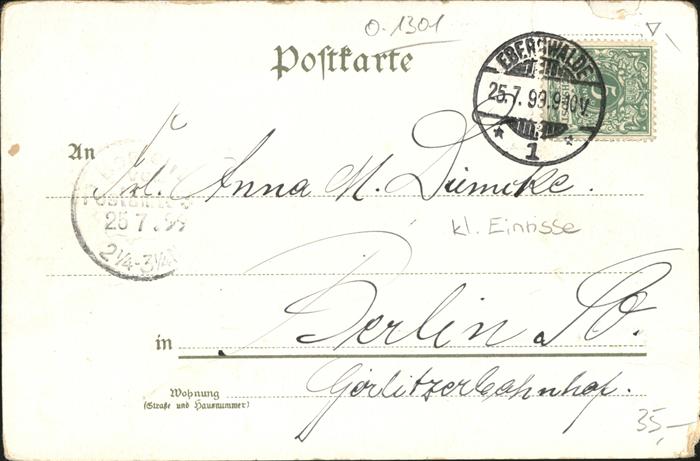 0.1301
Postkarte
EBERSWALDE
25.7.99.9-10V.
* 1 *
5
An
Frl. Anna M. Dümcke.
25 7 99
2¼-3¼N
kl. Einrisse
in Berlin SO.
Görlitzerbahnhof.
Wohnung
(Straße und Hausnummer)
35,-